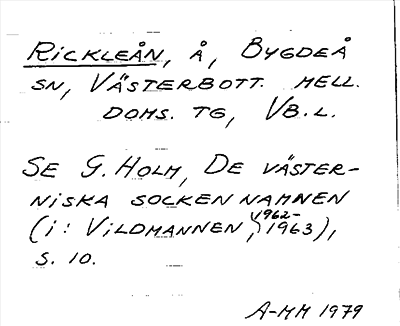 RICKLEÅN, Å, BYGDEÅ
SN, VÄSTERBOTT. MELL.
DOMS. TG, VB.L.
SE G. HOLM, DE VÄSTER-
NISKA SOCKENNAMNEN
(i: VILDMANNEN, 1962-1963),
S. 10.
A-MM 1979